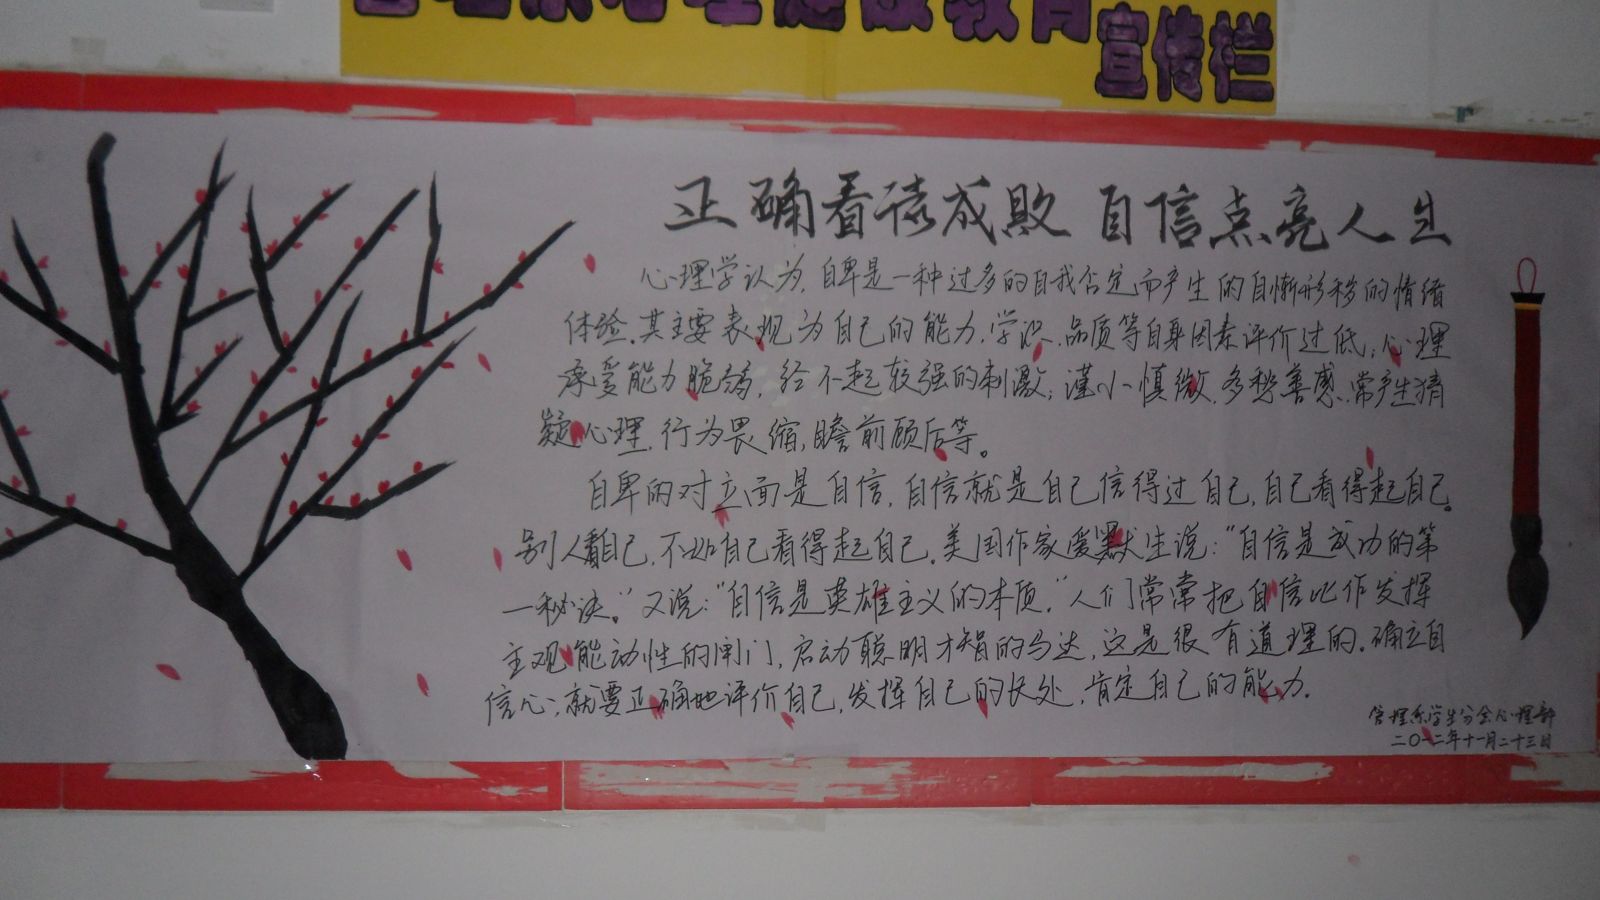 管理系心理健康教育宣传栏
正确看待成败 自信点亮人生
心理学认为，自卑是一种过多的自我否定而产生的自惭形秽的情绪
体验。其主要表现为自己的能力、学识、品质等自身因素评价过低；心理
承受能力脆弱，经不起较强的刺激；谨小慎微、多愁善感，常产生猜
疑心理，行为畏缩，瞻前顾后等。
自卑的对立面是自信，自信就是自己信得过自己，自己看得起自己。
别人看自己，不如自己看得起自己。美国作家爱默生说：“自信是成功的第
一秘诀。”又说：“自信是英雄主义的本质。”人们常常把自信比作发挥
主观能动性的闸门，启动聪明才智的马达，这是很有道理的。确立自
信心，就要正确地评价自己，发挥自己的长处，肯定自己的能力。
管理系学生分会心理部
二〇一二年十一月二十三日